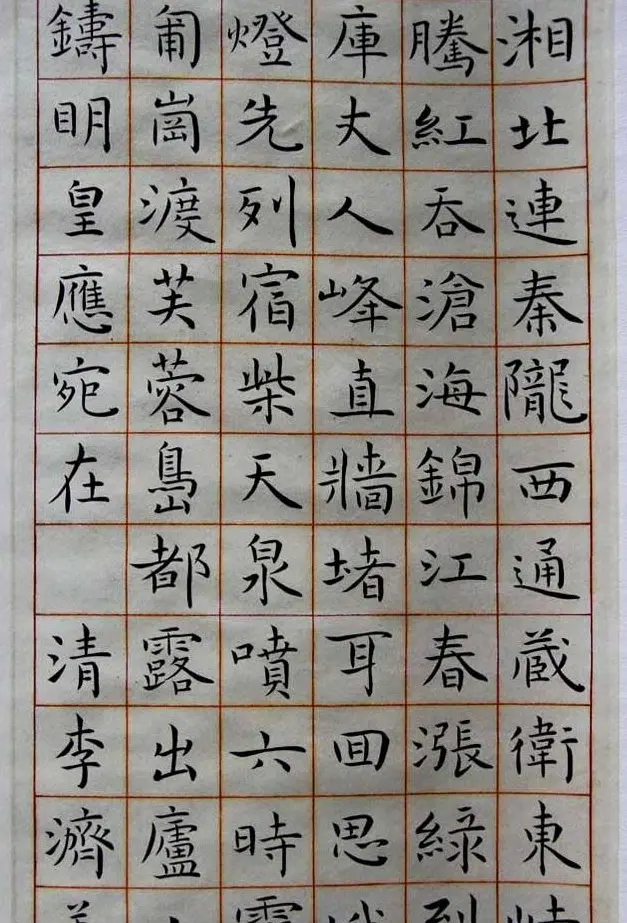 湘北連秦隴西通蔵衛東
騰紅吞滄海錦江春漲綠
庫丈人峰直牆堵耳回思
燈先列宿柴天泉噴六時
匍崗渡芙蓉島都露出廬
鑄明皇應宛在 清李濟